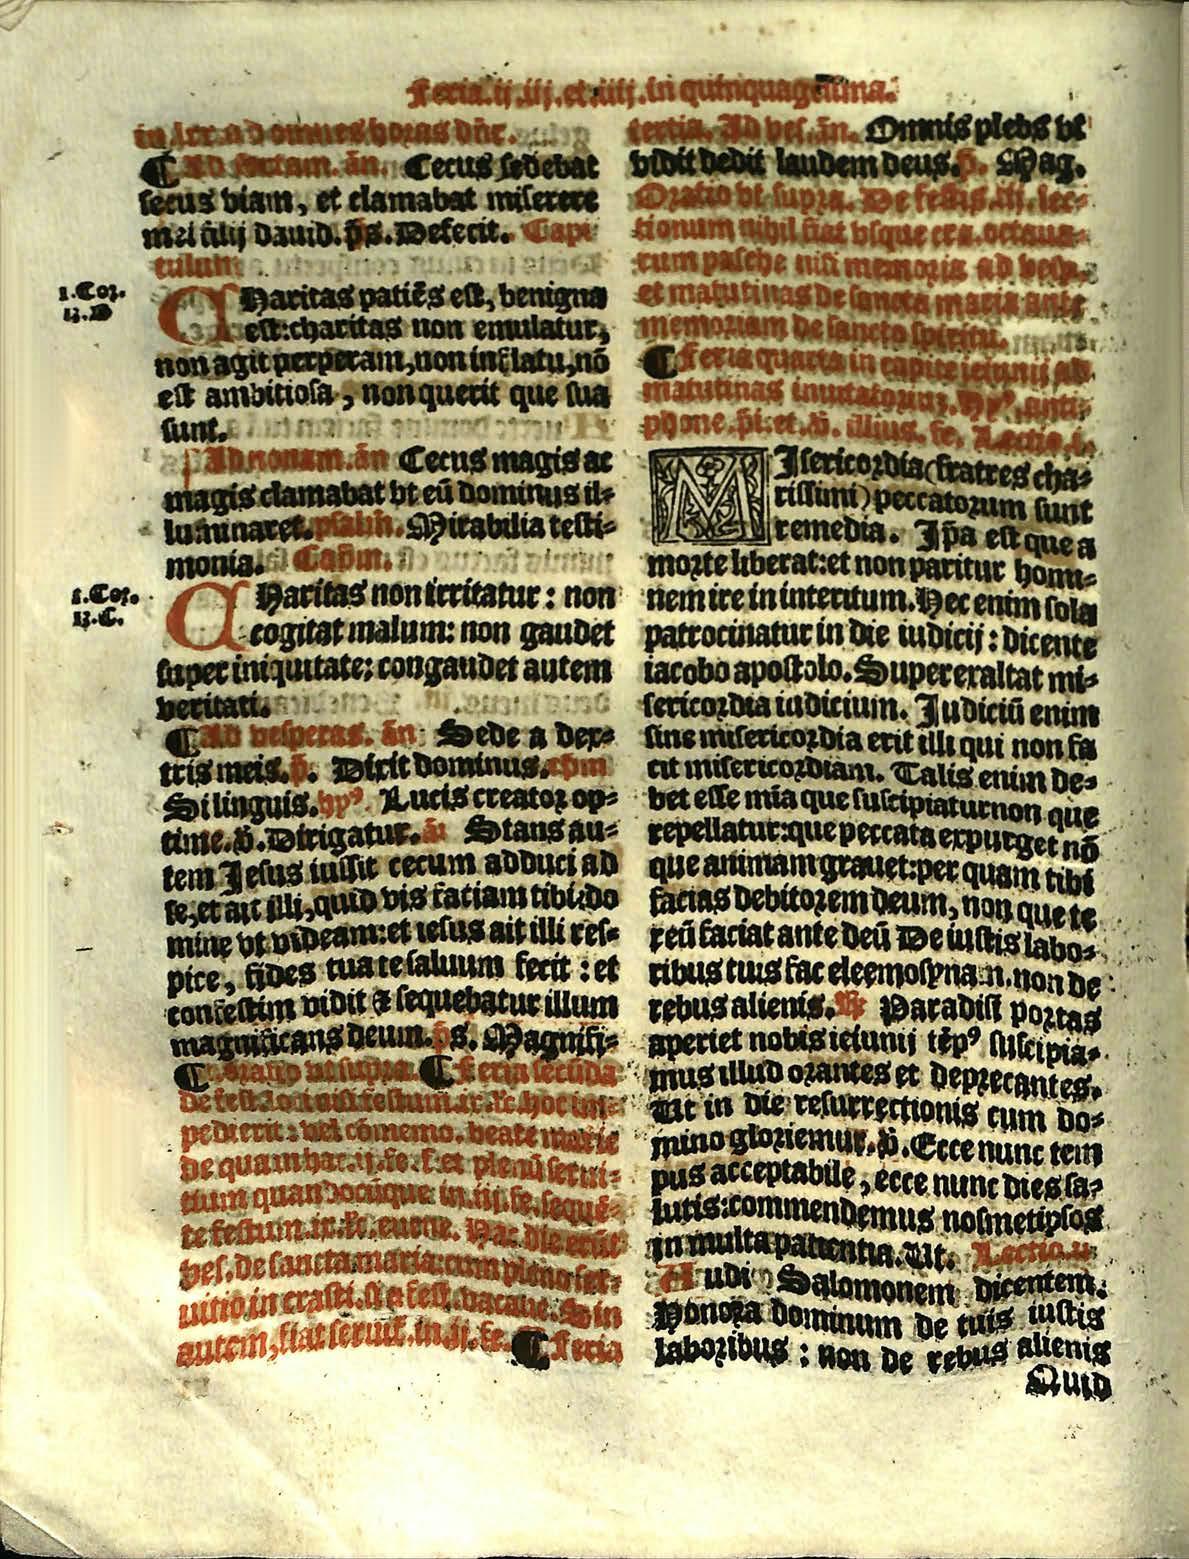 Feria.ij.iij.et.iiij.in quinquagesima.
in lxx.ad omnes horas dñe.
Ad sextam. añ. Cecus sedebat
secus viam, et clamabat miserere
mei filij dauid. p̄s. Defecit. Capi
tulum
1.Cor.
13.B
CHaritas patiẽs est, benigna
est:charitas non emulatur,
non agit perperam,non inflatu,nō
est ambitiosa, non querit que sua
sunt.
Ad nonam.ān Cecus magis ac
magis clamabat vt eū dominus il-
luminaret. psalm. Mirabilia testi-
monia. Capm.
1.Cor.
13.C.
CHaritas non irritatur: non
cogitat malum: non gaudet
super iniquitate: congaudet autem
veritati.
Ad vesperas. ān Sede a dex-
tris meis. p̄. Dixit dominus. cpm
Si linguis. hyꝰ. Lucis creator op-
time. v̄. Dirigatur. ā: Stans au-
tem Jesus iussit cecum adduci ad
se,et ait illi,quid vis faciam tibi:do
mine vt videam:et iesus ait illi res-
pice, fides tua te saluum fecit: et
confestim vidit & sequebatur illum
magnificans deum. p̄s. Magnifi-
Oratio vt supra. Feria secūda
de festo nisi festum.ix.lec.hoc im-
pedierit: vel cōmemo. beate marie
de qua in hac.ij.fe. et plenū serui-
tium quandocūque in.iij.fe.sequē-
te festum.ix.lec.euene. Hac die erūt
ves.de sancta maria:cum pleno ser-
uitio in crasti.si a fest.vacaue. Sin
autem,fiat seruit. in.ij.fe. Feria
tertia. Ad ves. ān. Omnis plebs vt
vidit dedit laudem deus. p̄. Mag.
Oratio vt supra. De festis.iij.lec-
tionum nihil fiat vsque cra.octaua-
rum pasche nisi memoria ad vesp.
et matutinas de sancta maria ante
memoriam de sancto spiritu.
Feria quarta in capite ieiunij ad
matutinas inuitatoriu. hyꝰ. anti-
phone. p̄i. et. v̄. illius. fe. Lectio.i.
MIsericordia(fratres cha-
rissimi)peccatorum sunt
remedia. Ip̄a est que a
morte liberat:et non paritur homi-
nem ire in interitum. Hec enim sola
patrocinatur in die iudicij: dicente
iacobo apostolo. Superexaltat mi-
sericordia iudicium. Judiciū enim
sine misericordia erit illi qui non fa
cit misericordiam. Talis enim de-
bet esse mīa que suscipiatur non que
repellatur:que peccata expurget nō
que animam grauet:per quam tibi
facias debitorem deum, non que te
reū faciat ante deū De iustis labo-
ribus tuis fac eleemosynam.non de
rebus alienis. ℟ Paradisi portas
aperiet nobis ieiunij tēpꝰ suscipia-
mus illud orantes et deprecantes.
Ut in die resurrectionis cum do-
mino gloriemur. v̄. Ecce nunc tem
pus acceptabile, ecce nunc dies sa-
lutis:commendemus nosmetipsos
in multa patientia. Ut. Lectio.ij.
Audi Salomonem dicentem.
Honora dominum de tuis iustis
laboribus: non de rebus alienis
Quid